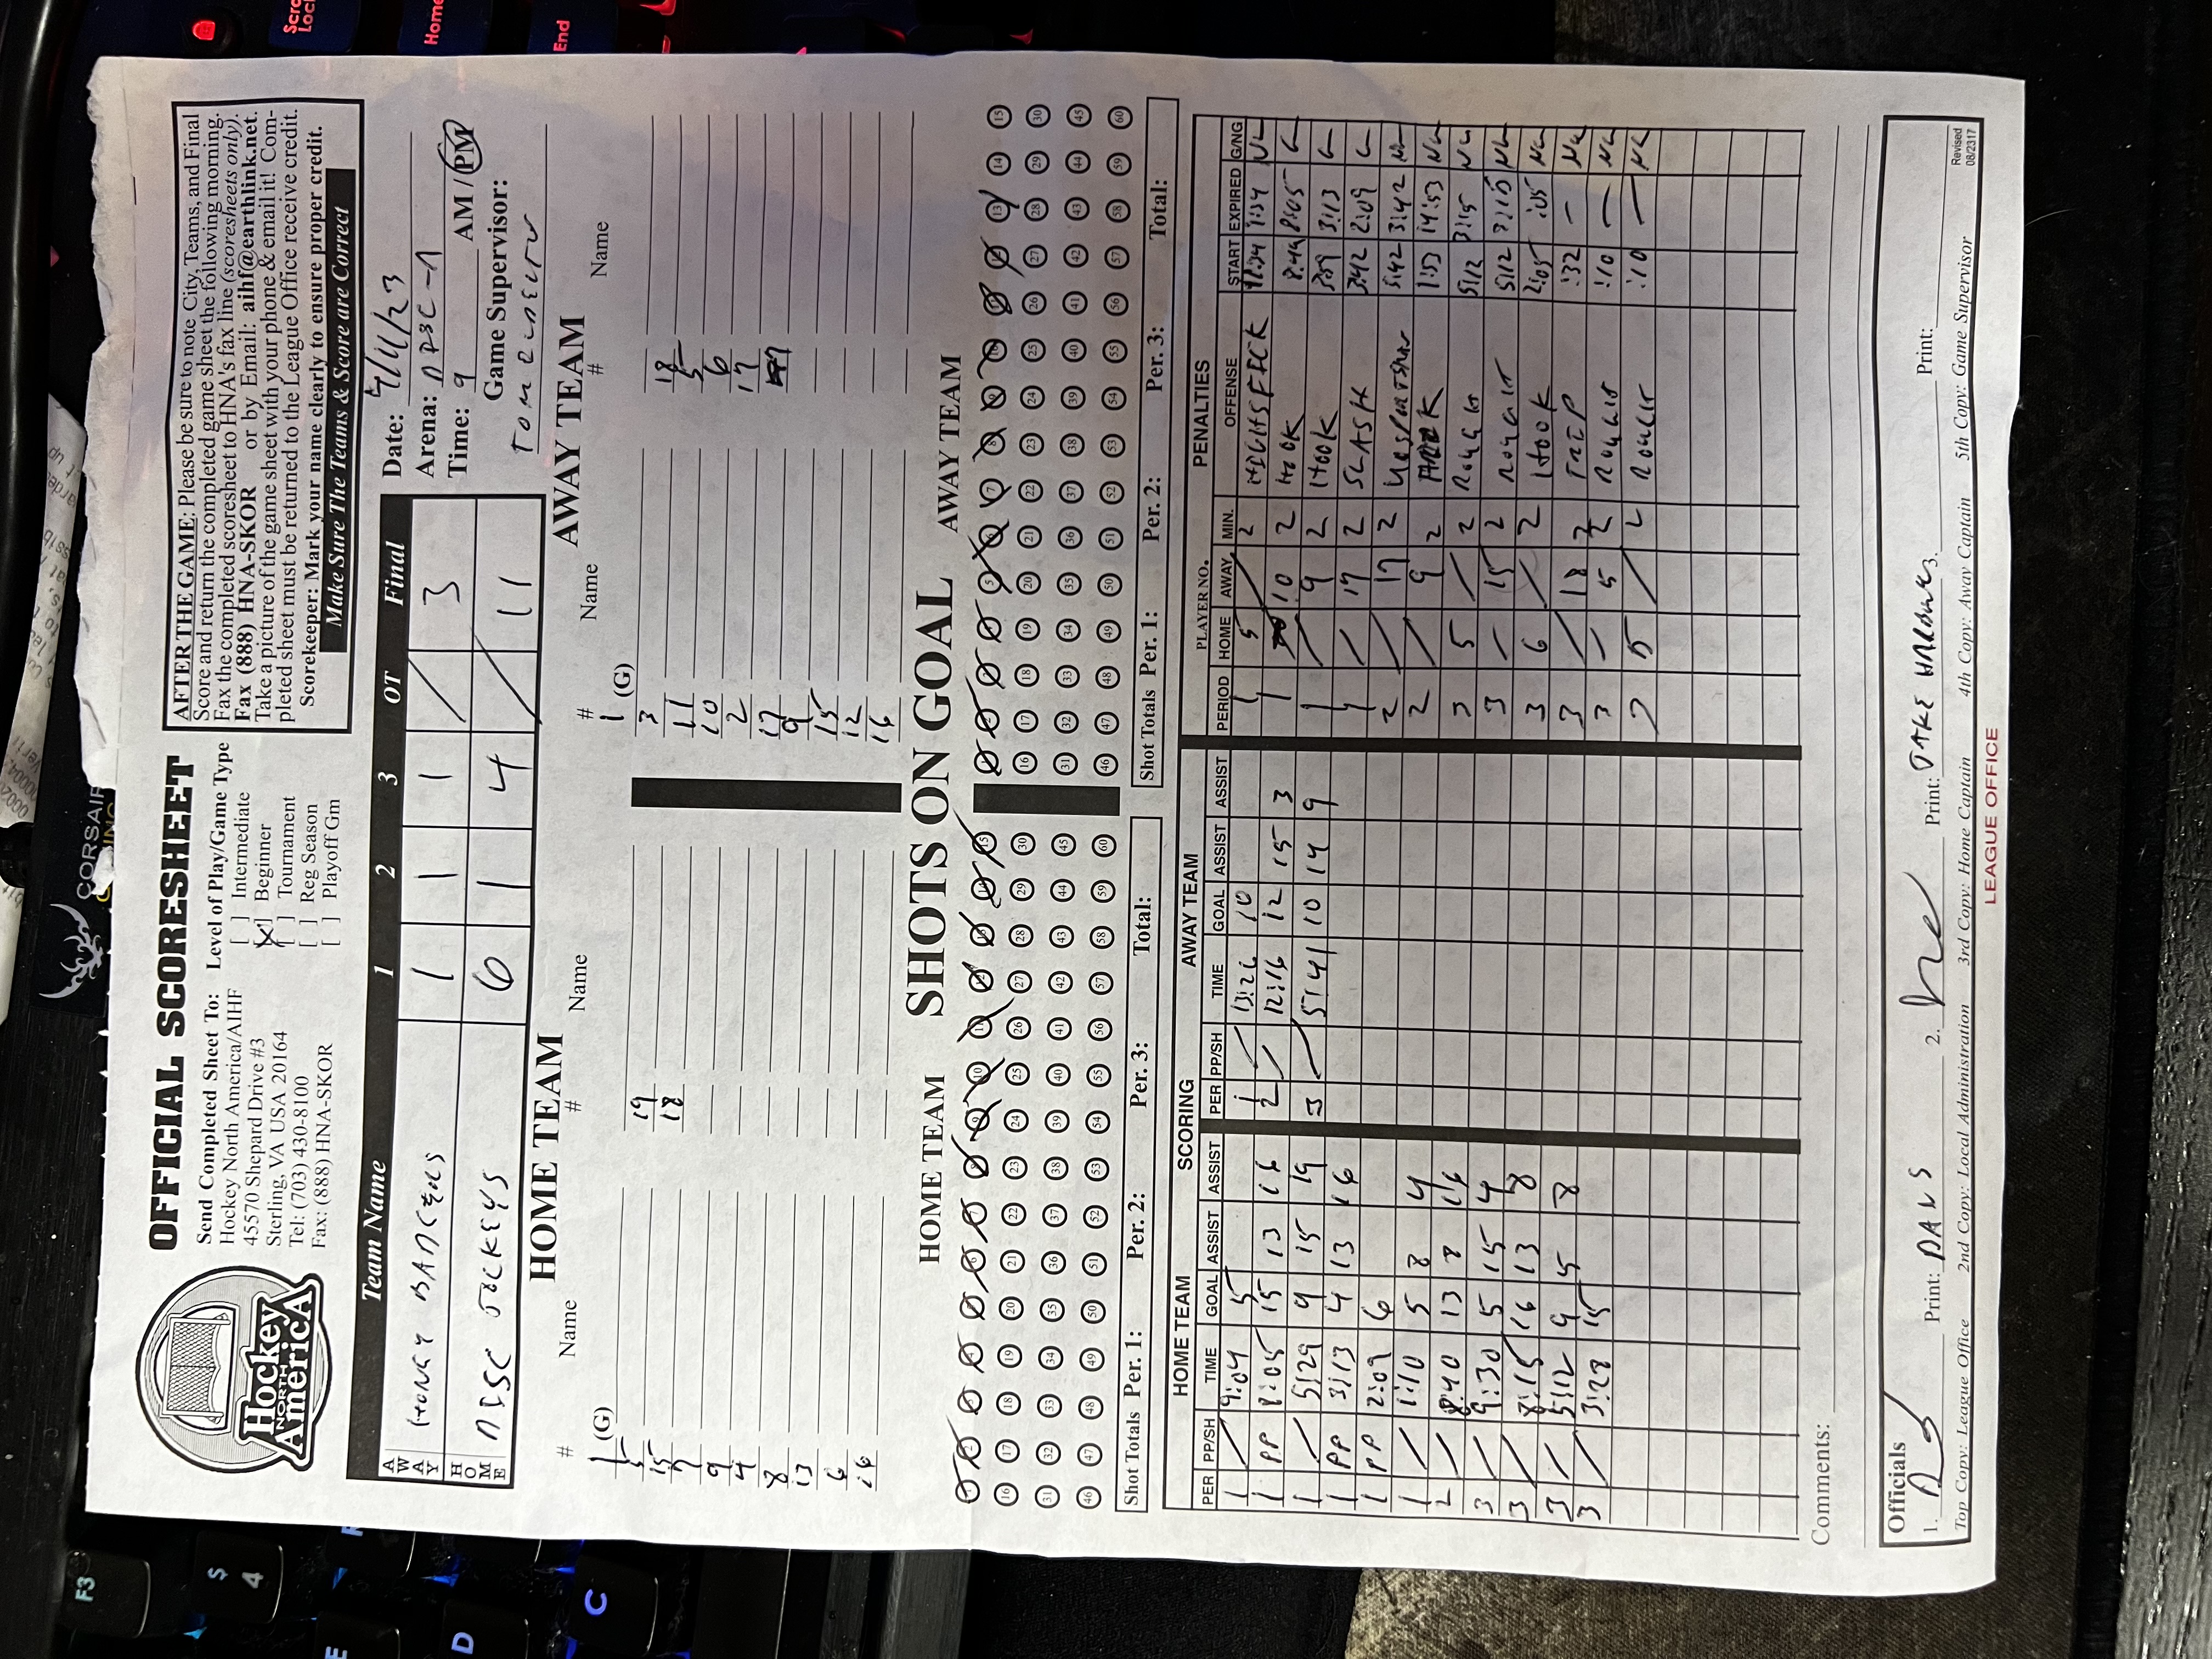 OFFICIAL SCORESHEET
Hockey
NORTH
America
Send Completed Sheet To:
Hockey North America/AIHF
45570 Shepard Drive #3
Sterling, VA USA 20164
Tel: (703) 430-8100
Fax: (888) HNA-SKOR
Level of Play/Game Type
[ ] Intermediate
[X] Beginner
[ ] Tournament
[ ] Reg Season
[ ] Playoff Gm
AFTER THE GAME: Please be sure to note City, Teams, and Final
Score and return the completed game sheet the following morning.
Fax the completed scoresheet to HNA's fax line (scoresheets only).
Fax (888) HNA-SKOR or by Email: aihf@earthlink.net.
Take a picture of the game sheet with your phone & email it! Com-
pleted sheet must be returned to the League Office receive credit.
Scorekeeper: Mark your name clearly to ensure proper credit.
Make Sure The Teams & Score are Correct
Team Name 1 2 3 OT Final
AWAY 1 1 1 / 3
HOME DISC JOCKEYS 6 1 4 / 11
Date: 4/11/23
Arena:
Time: 9 AM / PM
Game Supervisor:
HOME TEAM AWAY TEAM
# Name # Name # Name # Name
1 (G) 1 (G)
5 19 3 18
15 18 11 5
7 10 6
9 2 17
4 17
8 9
13 15
6 12
16 14
SHOTS ON GOAL
HOME TEAM AWAY TEAM
16 17 18 19 20 21 22 23 24 25 26 27 28 29 30 16 17 18 19 20 21 22 23 24 25 26 27 28 29 30
31 32 33 34 35 36 37 38 39 40 41 42 43 44 45 31 32 33 34 35 36 37 38 39 40 41 42 43 44 45
46 47 48 49 50 51 52 53 54 55 56 57 58 59 60 46 47 48 49 50 51 52 53 54 55 56 57 58 59 60
Shot Totals Per. 1: Per. 2: Per. 3: Total: Shot Totals Per. 1: Per. 2: Per. 3: Total:
HOME TEAM SCORING AWAY TEAM PENALTIES
PER PP/SH TIME GOAL ASSIST ASSIST PER PP/SH TIME GOAL ASSIST ASSIST PERIOD PLAYER NO. HOME AWAY MIN. OFFENSE START EXPIRED G/NG
1 / 9:04 5 1 / 13:26 10 1 5 / 2 HIGH STICK
1 PP 8:05 15 13 16 2 / 12:16 12 15 3 1 10 2 HOOK 8:49 8:05 G
1 / 5:29 9 15 19 3 / 5:41 10 14 9 1 / 9 2 HOOK 3:59 3:13 G
1 PP 3:13 4 13 16 1 / 17 2 SLASH 3:42 2:09 G
1 PP 2:09 6 2 / 17 2 5:42 3:42 NG
1 / 1:10 5 8 4 2 / 9 2 1:53 14:53 NG
2 / 8:40 13 8 16 3 5 / 2 ROUGH 5:12 3:15 NG
3 / 9:30 5 15 4 3 / 15 2 ROUGH 5:12 NG
3 / 8:15 16 13 8 3 6 / 2 HOOK 2:05 :05 NG
3 / 5:12 9 5 8 3 / 18 2 TRIP :32 — NG
3 / 3:28 15 3 / 5 2 ROUGH :10 — NG
3 5 / 2 ROUGH :10 — NG
Comments:
Officials
1. Print: 2. Print: JAKE 3. Print:
Top Copy: League Office 2nd Copy: Local Administration 3rd Copy: Home Captain 4th Copy: Away Captain 5th Copy: Game Supervisor
Revised
08/2317
LEAGUE OFFICE
CORSAIR
Scroll
Lock
Home
End
F3
$
4
E
R
D
C